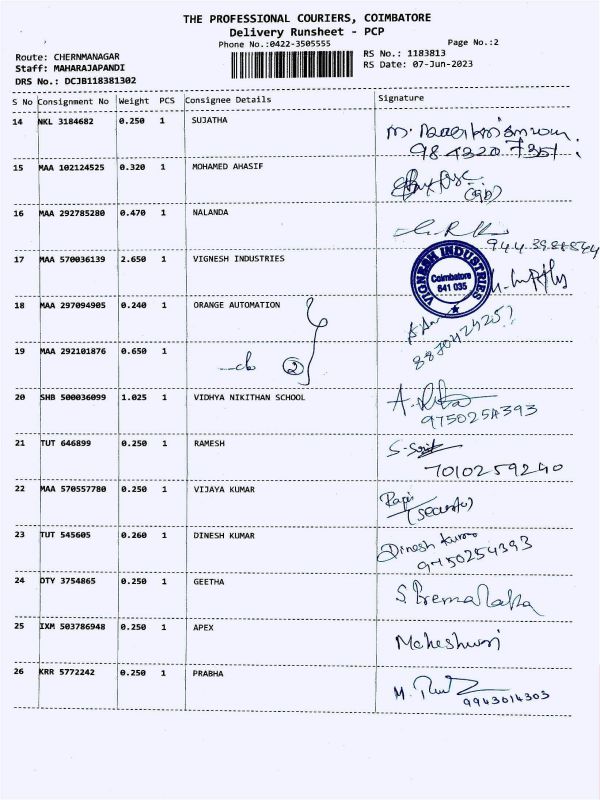 THE PROFESSIONAL COURIERS, COIMBATORE
Delivery Runsheet - PCP
Phone No.:0422-3505555
Page No.:2
Route: CHERNMANAGAR
RS No.: 1183813
Staff: MAHARAJAPANDI
RS Date: 07-Jun-2023
DRS No.: DCJB118381302
S No Consignment No Weight PCS Consignee Details Signature
14 NKL 3184682 0.250 1 SUJATHA
15 MAA 102124525 0.320 1 MOHAMED AHASIF
16 MAA 292785280 0.470 1 NALANDA
17 MAA 570036139 2.650 1 VIGNESH INDUSTRIES
VIGNESH INDUSTRIES
Coimbatore
641 035
18 MAA 297094905 0.240 1 ORANGE AUTOMATION
19 MAA 292101876 0.650 1
2
20 SHB 500036099 1.025 1 VIDHYA NIKITHAN SCHOOL
9750254393
21 TUT 646899 0.250 1 RAMESH
7010259240
22 MAA 570557780 0.250 1 VIJAYA KUMAR
23 TUT 545605 0.260 1 DINESH KUMAR
Dinesh Kumar
9750254393
24 DTY 3754865 0.250 1 GEETHA
S Premalatha
25 IXM 503786948 0.250 1 APEX
Maheshwari
26 KRR 5772242 0.250 1 PRABHA
9943014303